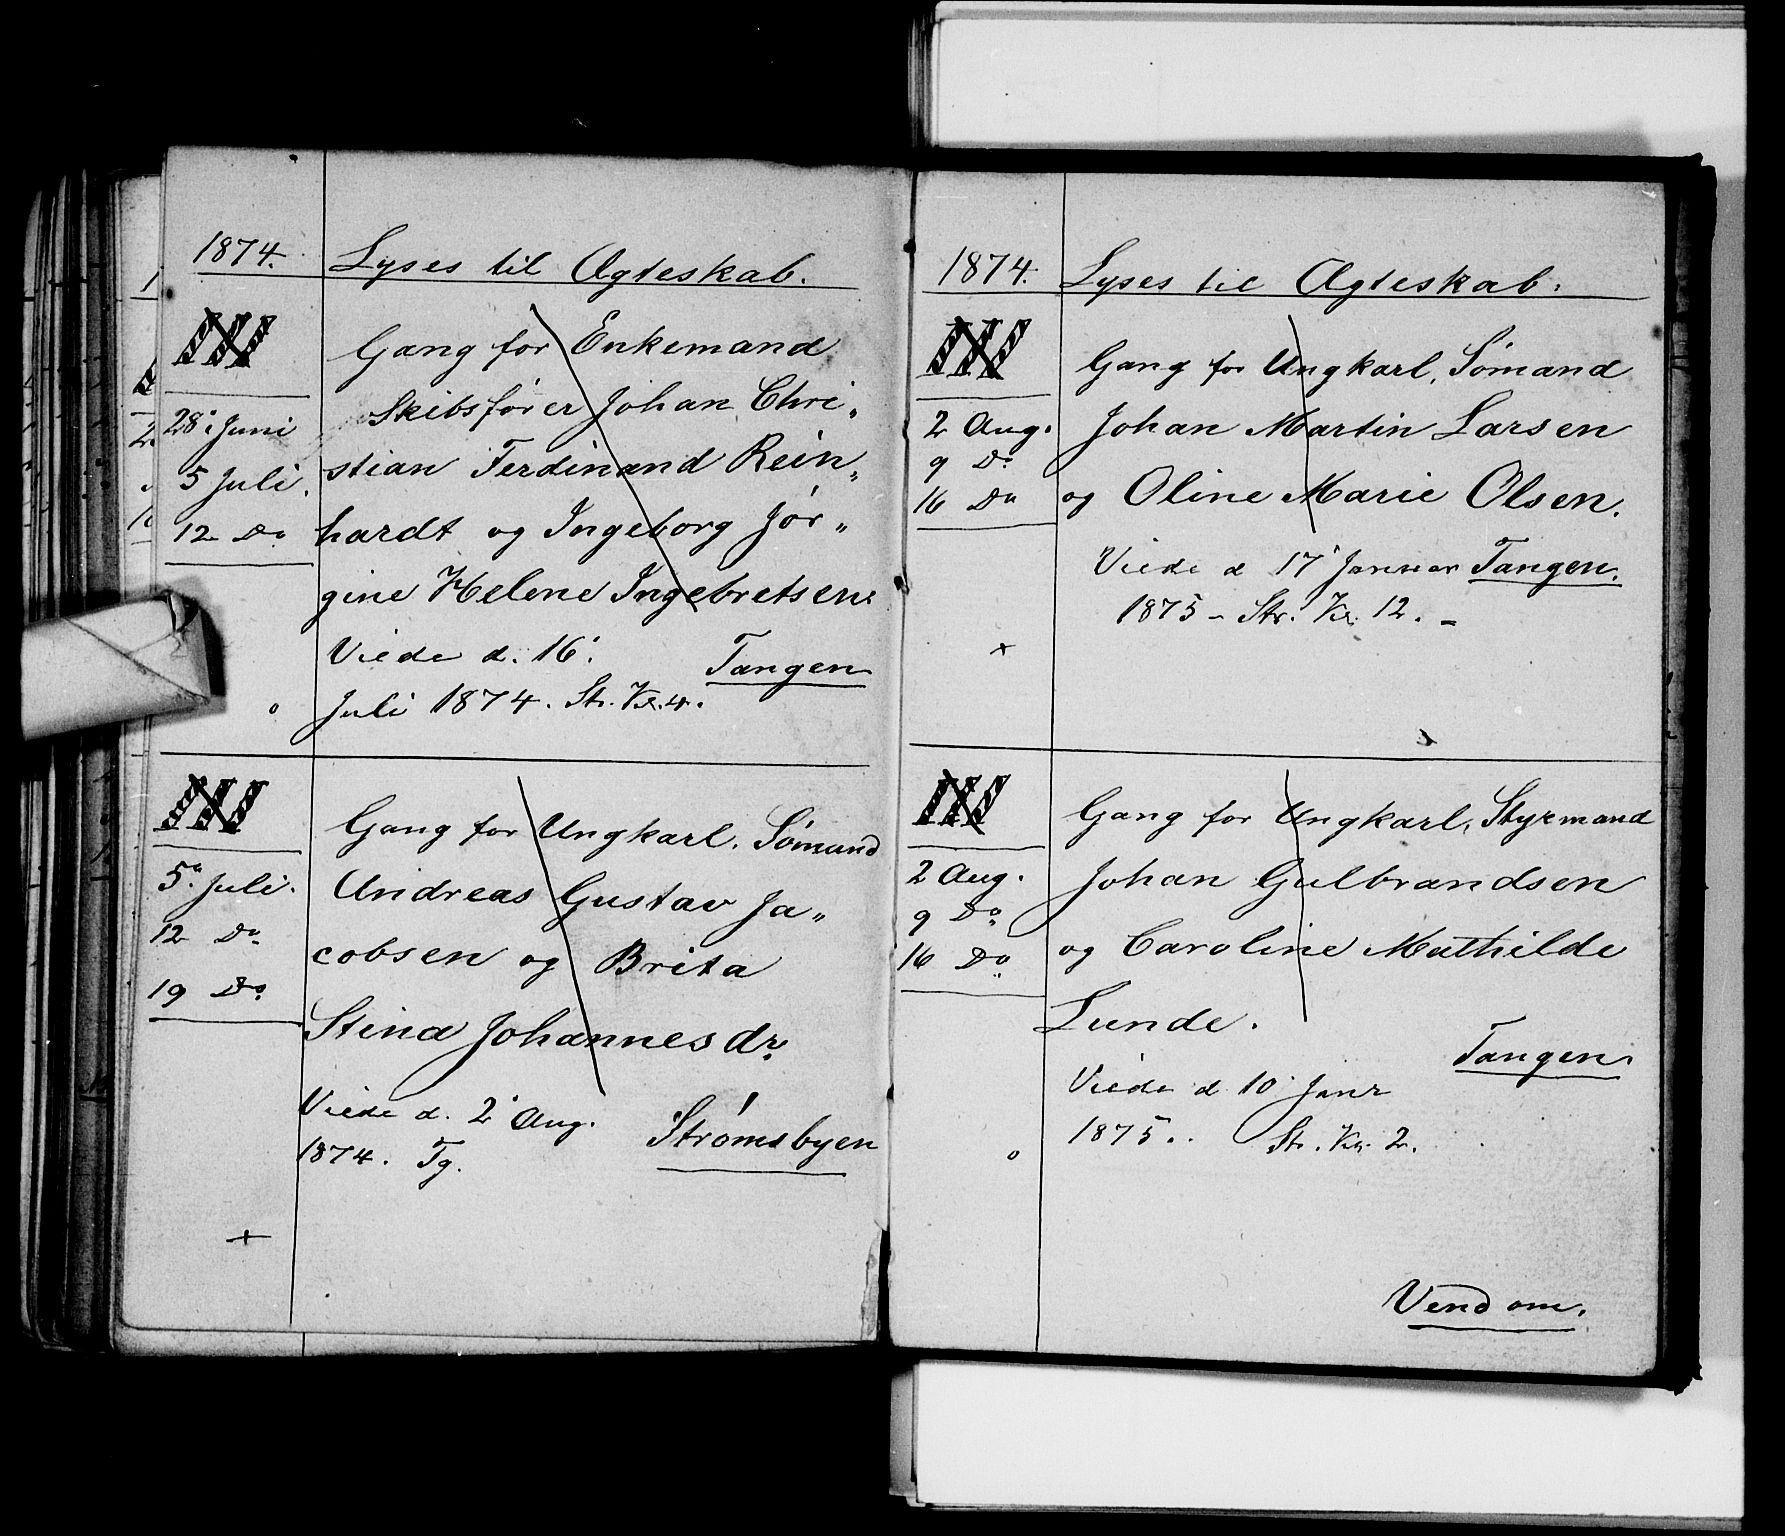 1874. Lyses til Ægteskab.
III Gang for Enkemand
Skibsfører Johan Chri„
28' Juni
stian Ferdinand Rein„
5 Juli.
hardt og Ingeborg Jør„
12 Do
gine Helene Ingebretsen.
Viede d. 16'
Tangen
Juli 1874. Str. Kr. 4.
III Gang for Ungkarl. Sømand
5' Juli.
Andreas Gustav Ja„
12 Do
cobsen og Brita
19 Do
Stina Johannesdr.
Viede d. 2' Aug.
Strømsbyen
1874. Tg.
+
1874. Lyses til Ægteskab.
III Gang for Ungkarl, Sømand
2 Aug. Johan Martin Larsen
9 Do
16 Do og Oline Marie Olsen.
Viede d 17' Januar Tangen.
1875 - Str. Kr. 12. -
+
III Gang for Ungkarl, Styrmand
2 Aug. Johan Gulbrandsen
9 Do
16 Do og Caroline Mathilde
Lunde.
Tangen.
Viede d 10' Janr
1875. Str. Kr. 2.
Vend om.